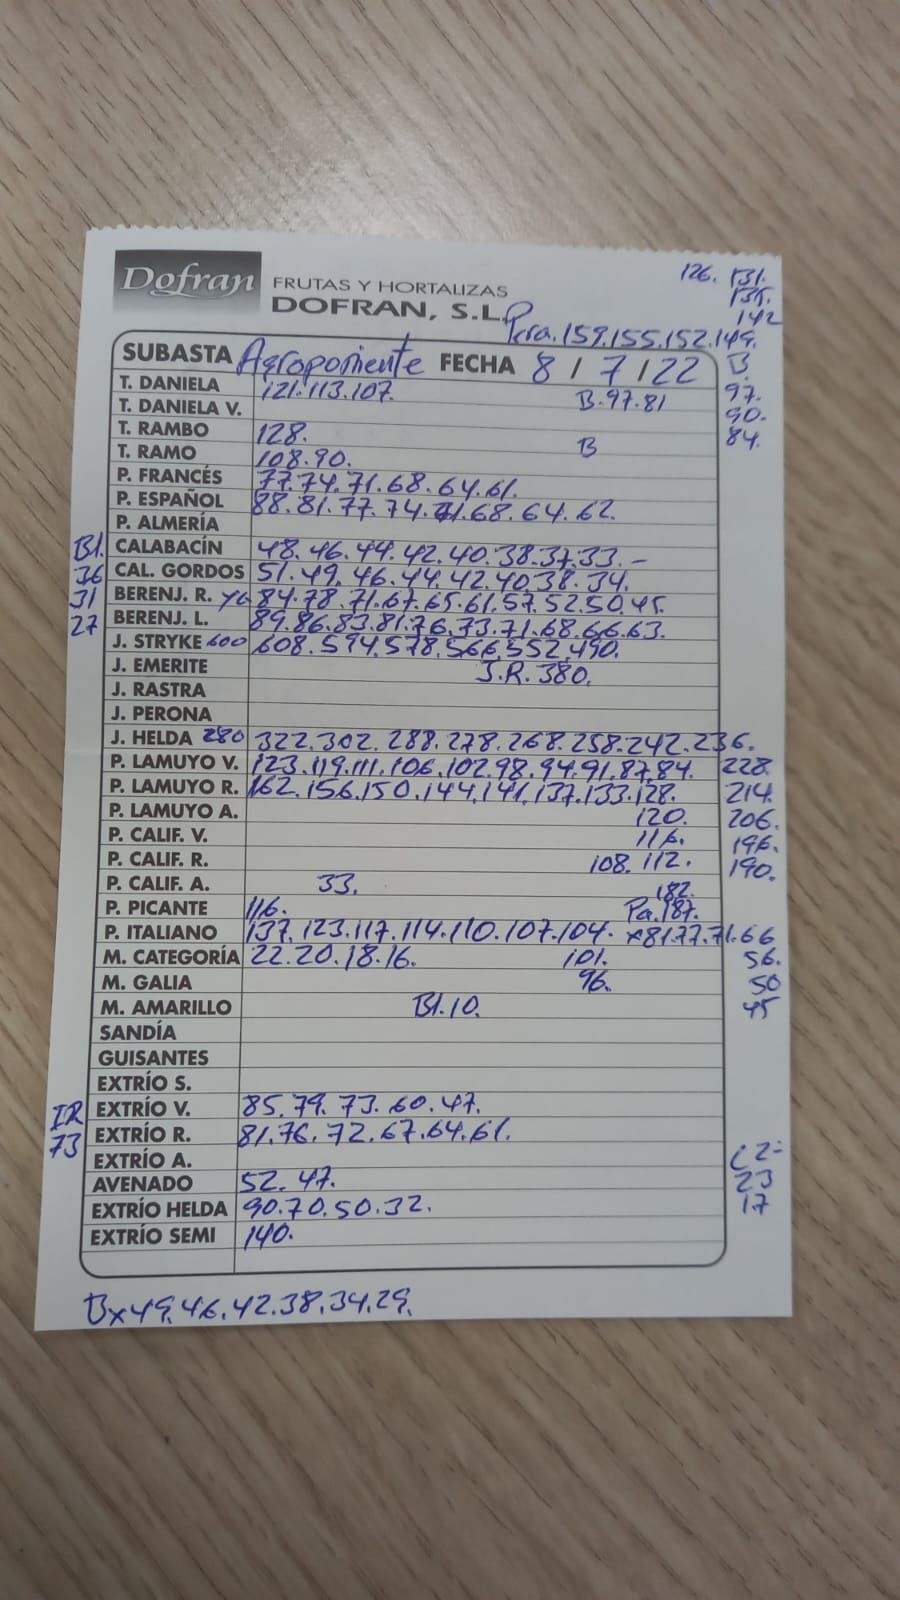 Dofran FRUTAS Y HORTALIZAS
DOFRAN, S.L.
126. 131.
135.
142
Pera. 159.155.152.149.
SUBASTA Agroponiente FECHA 8 / 7 / 22 B.
T. DANIELA 121.113.107. B.97.81 97.
T. DANIELA V. 90.
T. RAMBO 128. B 84.
T. RAMO 108.90.
P. FRANCÉS 77.74.71.68.64.61.
P. ESPAÑOL 88.81.77.74.71.68.64.62.
P. ALMERÍA
B1. CALABACÍN 48.46.44.42.40.38.37.33.-
36 CAL. GORDOS 51.49.46.44.42.40.38.34.
31 BERENJ. R. YG 84.78.71.67.65.61.57.52.50.45.
27 BERENJ. L. 89.86.83.81.76.73.71.68.66.63.
J. STRYKE 600 608.594.578.566.552.490.
J. EMERITE J.R. 380.
J. RASTRA
J. PERONA
J. HELDA 280 322.302.288.278.268.258.242.236.
P. LAMUYO V. 123.119.111.106.102.98.94.91.87.84. 228.
P. LAMUYO R. 162.156.150.144.141.137.133.128. 214.
P. LAMUYO A. 120. 206.
P. CALIF. V. 116. 196.
P. CALIF. R. 108. 112. 190.
P. CALIF. A. 33. 182.
P. PICANTE 116. Pa.187.
P. ITALIANO 137.123.117.114.110.107.104. x81.77.71.66
M. CATEGORÍA 22.20.18.16. 101. 56.
M. GALIA 96. 50
M. AMARILLO B1.10. 45
SANDÍA
GUISANTES
EXTRÍO S.
IR EXTRÍO V. 85.79.73.60.47.
73 EXTRÍO R. 81.76.72.67.64.61.
EXTRÍO A. C2-
AVENADO 52.47. 23
EXTRÍO HELDA 90.70.50.32. 17
EXTRÍO SEMI 140.
Bx49.46.42.38.34.29.